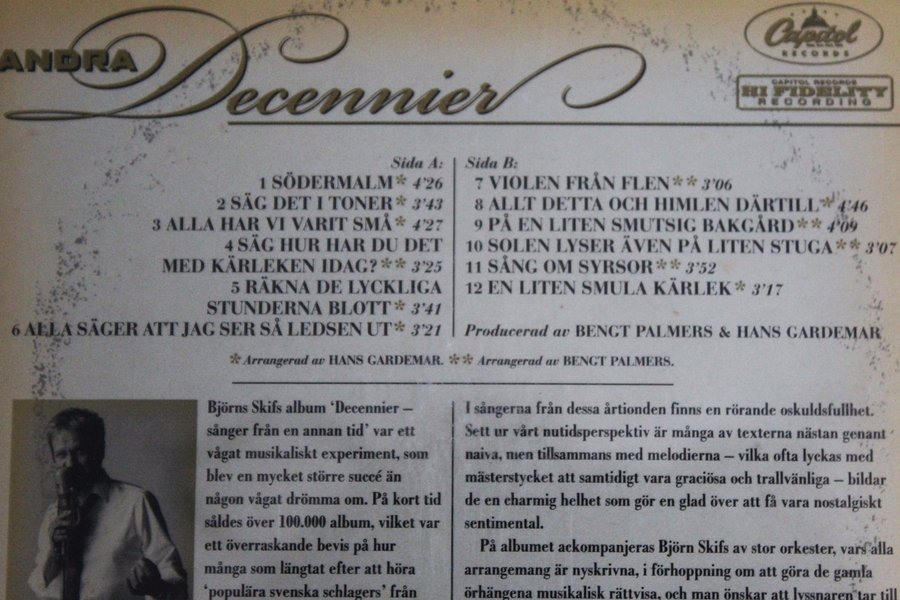 ANDRA
Decennier
Capitol
RECORDS
CAPITOL RECORDS
HI FIDELITY
RECORDING
Sida A:
1 SÖDERMALM* 4'26
2 SÄG DET I TONER* 3'43
3 ALLA HAR VI VARIT SMÅ* 4'27
4 SÄG HUR HAR DU DET
MED KÄRLEKEN IDAG?** 3'25
5 RÄKNA DE LYCKLIGA
STUNDERNA BLOTT* 3'41
6 ALLA SÄGER ATT JAG SER SÅ LEDSEN UT* 3'21
Sida B:
7 VIOLEN FRÅN FLEN** 3'06
8 ALLT DETTA OCH HIMLEN DÄRTILL* 4'46
9 PÅ EN LITEN SMUTSIG BAKGÅRD** 4'09
10 SOLEN LYSER ÄVEN PÅ LITEN STUGA** 3'07
11 SÅNG OM SYRSOR** 3'52
12 EN LITEN SMULA KÄRLEK* 3'17
Producerad av BENGT PALMERS & HANS GARDEMAR
*Arrangerad av HANS GARDEMAR. ** Arrangerad av BENGT PALMERS.
Björns Skifs album 'Decennier –
sånger från en annan tid' var ett
vågat musikaliskt experiment, som
blev en mycket större succé än
någon vågat drömma om. På kort tid
såldes över 100.000 album, vilket var
ett överraskande bevis på hur
många som längtat efter att höra
'populära svenska schlagers' från
I sångerna från dessa årtionden finns en rörande oskuldsfullhet.
Sett ur vårt nutidsperspektiv är många av texterna nästan genant
naiva, men tillsammans med melodierna – vilka ofta lyckas med
mästerstycket att samtidigt vara graciösa och trallvänliga – bildar
de en charmig helhet som gör en glad över att få vara nostalgiskt
sentimental.
På albumet ackompanjeras Björn Skifs av stor orkester, vars alla
arrangemang är nyskrivna, i förhoppning om att göra de gamla
örhängena musikalisk rättvisa, och man önskar att lyssnaren tar till